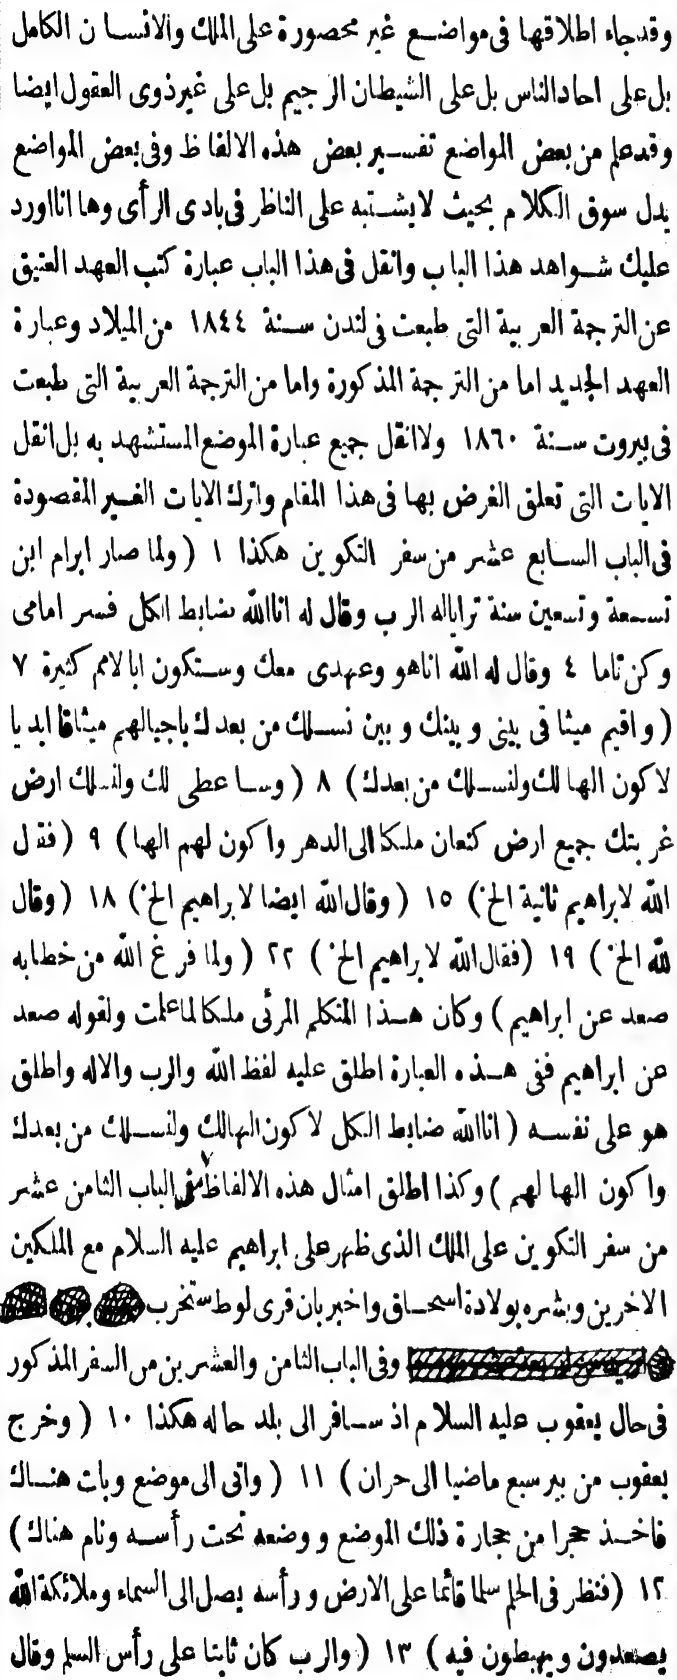 وقدجاء اطلاقها فى مواضع غير محصورة على الملك والانسان الكامل
بل على احاد الناس بل على الشيطان الرجيم بل على غير ذوى العقول ايضا
وقدعلم من بعض المواضع تفسير بعض هذه الالفاظ وفى بعض المواضع
يدل سوق الكلام بحيث لايشتبه على الناظر فى بادى الرأى وها انا اورد
عليك شواهد هذا الباب وانقل فى هذا الباب عبارة كتب العهد العتيق
عن الترجمة العربية التى طبعت فى لندن سنة ١٨٤٤ من الميلاد وعبارة
العهد الجديد اما من الترجمة المذكورة واما من الترجمة العربية التى طبعت
فى بيروت سنة ١٨٦٠ ولا انقل جميع عبارة الموضع المستشهد به بل انقل
الايات التى تعلق الغرض بها فى هذا المقام واترك الايات الغير المقصودة
فى الباب السابع عشر من سفر التكوين هكذا ١ (ولما صار ابرام ابن
تسعة وتسعين سنة ترايا له الرب وقال له انا الله ضابط الكل فسر امامى
وكن تاما ٤ وقال له الله انا هو وعهدى معك وستكون ابا لامم كثيرة ٧
(واقيم ميثاقى بينى وبينك وبين نسلك من بعدك باجيالهم ميثاقا ابديا
لاكون الها لك ولنسلك من بعدك) ٨ (وساعطى لك ولنسلك ارض
غربتك جميع ارض كنعان ملكا الى الدهر واكون لهم الها) ٩ (فقل
الله لابراهيم ثانية الخ) ١٥ (وقال الله ايضا لابراهيم الخ) ١٨ (وقال
لله الخ) ١٩ (فقال الله لابراهيم الخ) ٢٢ (ولما فرغ الله من خطابه
صعد عن ابراهيم) وكان هذا المتكلم المرئى ملكا لما علمت ولقوله صعد
عن ابراهيم ففى هذه العبارة اطلق عليه لفظ الله والرب والاله واطلق
هو على نفسه (انا الله ضابط الكل لاكون الها لك ولنسلك من بعدك
واكون الها لهم) وكذا اطلق امثال هذه الالفاظ فى الباب الثامن عشر
من سفر التكوين على الملك الذى ظهر على ابراهيم عليه السلام مع الملكين
الاخرين وبشره بولادة اسحاق واخبر بان قرى لوط ستخرب
وفى الباب الثامن والعشرين من السفر المذكور
فى حال يعقوب عليه السلام اذ سافر الى بلد خاله هكذا ١٠ (وخرج
يعقوب من بير سبع ماضيا الى حران) ١١ (واتى الى موضع وبات هناك
فاخذ حجرا من حجارة ذلك الموضع ووضعه تحت رأسه ونام هناك)
١٢ (فنظر فى الحلم سلما قائما على الارض ورأسه يصل الى السماء وملائكة الله
يصعدون ويهبطون فيه) ١٣ (والرب كان ثابتا على رأس السلم وقال